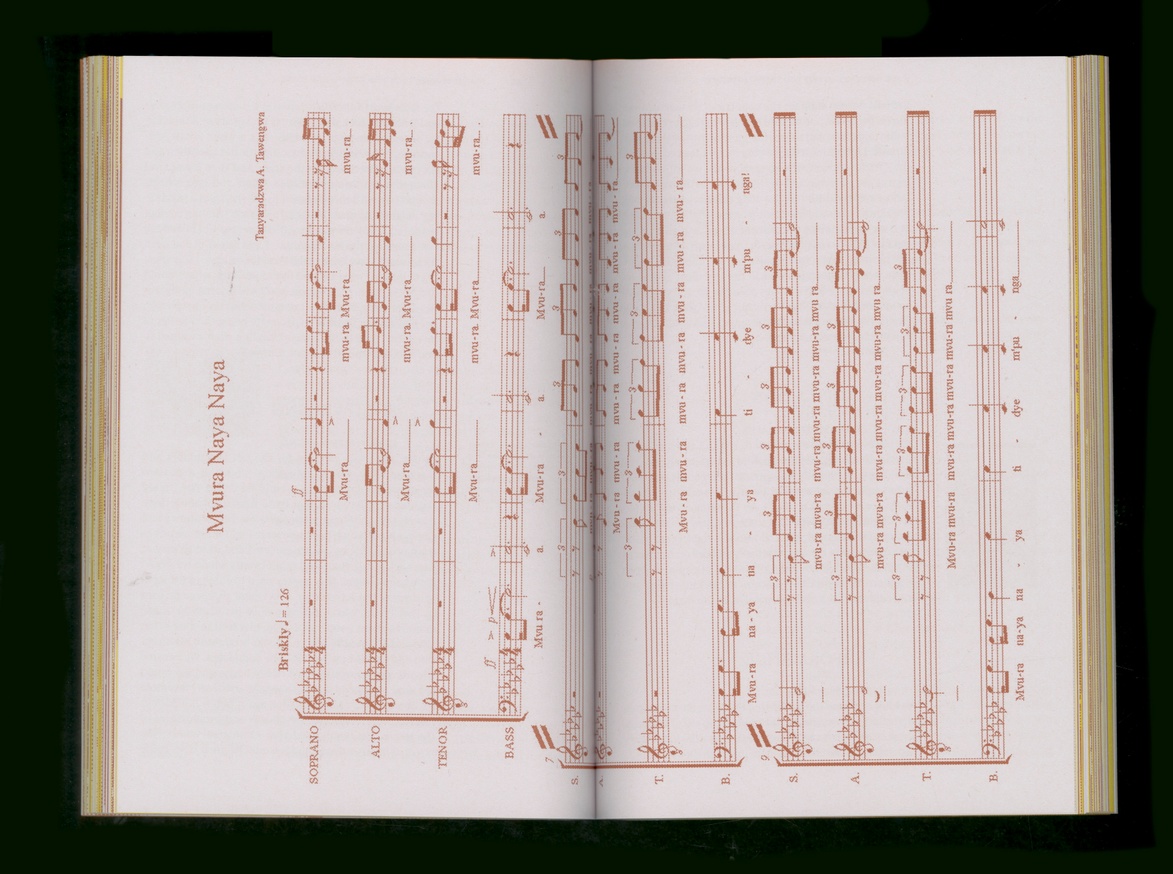 Mvura Naya Naya
Tanyaradzwa A. Tawengwa
Briskly ♩ = 126
SOPRANO
ff
Mvu-ra mvu-ra. Mvu-ra mvu-ra.
ALTO
Mvu-ra mvu-ra. Mvu-ra mvu-ra.
TENOR
Mvu-ra mvu-ra. Mvu-ra mvu-ra.
BASS
ff p
Mvu ra - a. Mvu-ra - a. Mvu-ra a.
7
S.
A.
Mvu - ra mvu - ra mvu - ra mvu - ra mvu - ra mvu - ra
T.
Mvu - ra mvu - ra mvu - ra mvu - ra mvu - ra mvu - ra
B.
Mvu - ra na - ya na - ya ti - dye m'pu - nga!
9
S.
mvu-ra mvu-ra mvu-ra mvu-ra mvu-ra mvu-ra mvu ra
A.
mvu-ra mvu-ra mvu-ra mvu-ra mvu-ra mvu-ra mvu ra
T.
Mvu-ra mvu-ra mvu-ra mvu-ra mvu-ra mvu-ra mvu ra
B.
Mvu-ra na-ya na - ya ti - dye m'pu - nga